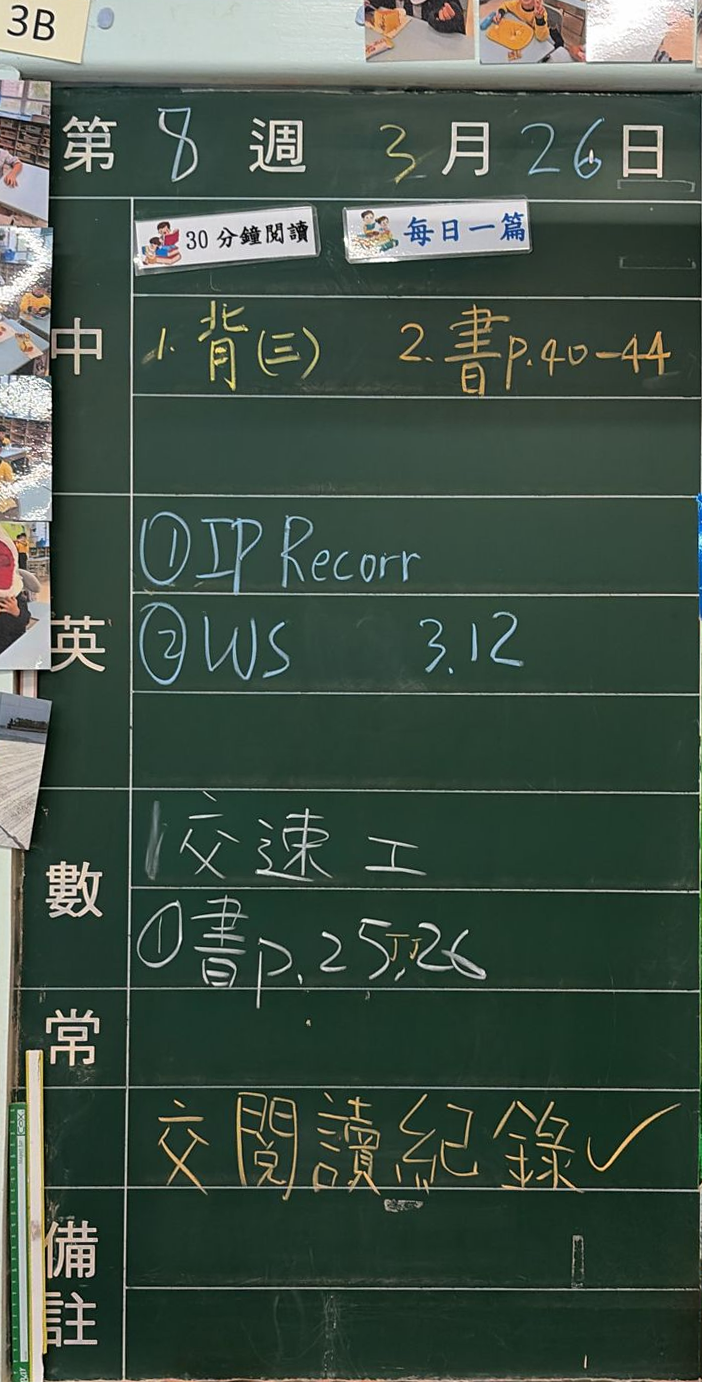 3B
第 8 週 3 月 26 日
30分鐘閱讀 每日一篇
中
1. 背(三) 2. 書p.40-44
英
①IP Recorr
②WS 3.12
數
交速工
①書p.25,26
常
交閱讀紀錄✓
備註